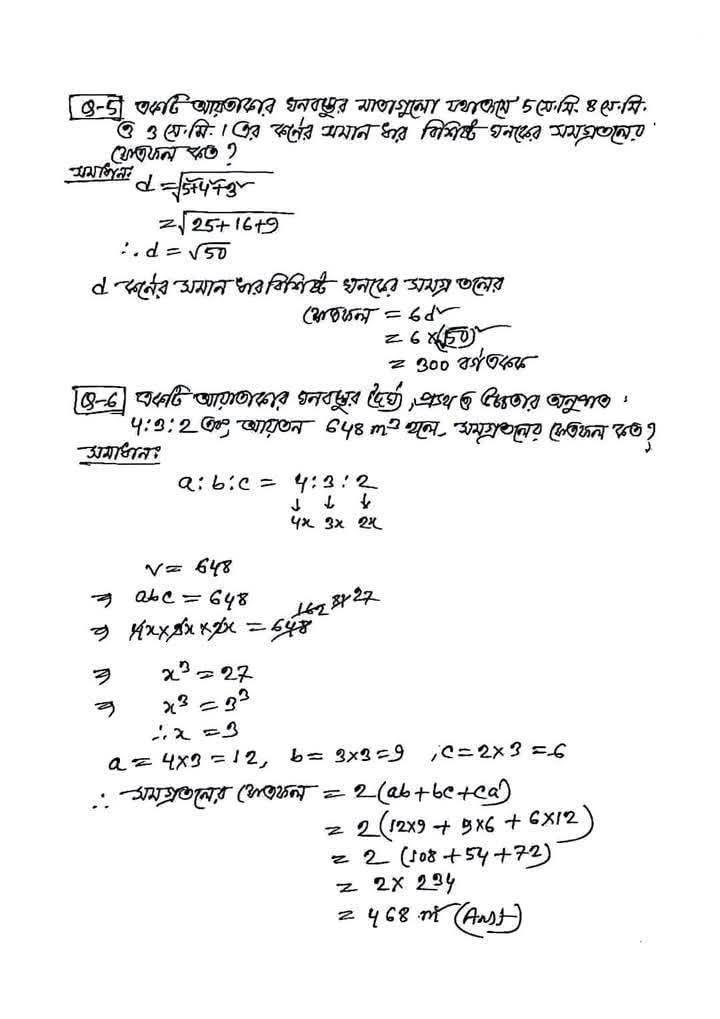 Q-5 একটি আয়তাকার ঘনবস্তুর মাত্রাগুলো যথাক্রমে 5 সে.মি. 4 সে.মি.
ও 3 সে.মি.। এর কর্ণের সমান ধার বিশিষ্ট ঘনকের সমগ্রতলের
ক্ষেত্রফল কত?
সমাধানঃ
d = √5²+4²+3²
= √25+16+9
∴ d = √50
d কর্ণের সমান ধার বিশিষ্ট ঘনকের সমগ্র তলের
ক্ষেত্রফল = 6d²
= 6×(√50)²
= 300 বর্গ একক
Q-6 একটি আয়তাকার ঘনবস্তুর দৈর্ঘ্য, প্রস্থ ও উচ্চতার অনুপাত
4:3:2 এবং আয়তন 648 m³ হলে সমগ্রতলের ক্ষেত্রফল কত?
সমাধানঃ
a:b:c = 4:3:2
↓ ↓ ↓
4x 3x 2x
v = 648
⇒ abc = 648
162 81 27
⇒ 4x×3x×2x = 648
⇒ x³ = 27
⇒ x³ = 3³
∴ x = 3
a = 4×3 = 12, b = 3×3 = 9, c = 2×3 = 6
∴ সমগ্রতলের ক্ষেত্রফল = 2(ab+bc+ca)
= 2(12×9 + 9×6 + 6×12)
= 2 (108+54+72)
= 2× 234
= 468 m² (Ans)